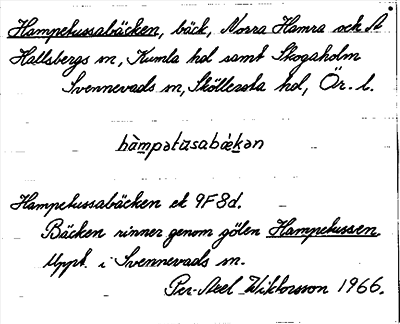 Hampetussabäcken, bäck, Norra Hamra och
Hallsbergs sn, Kumla hd samt Skogaholm
Svennevads sn, Sköllersta hd, Ör. l.
hàmpətusabǽkən
Hampetussabäcken ek 9F8d.
Bäcken rinner genom gölen Hampetussen
Uppt. i Svennevads sn.
Per-Axel Wiktorsson 1966.